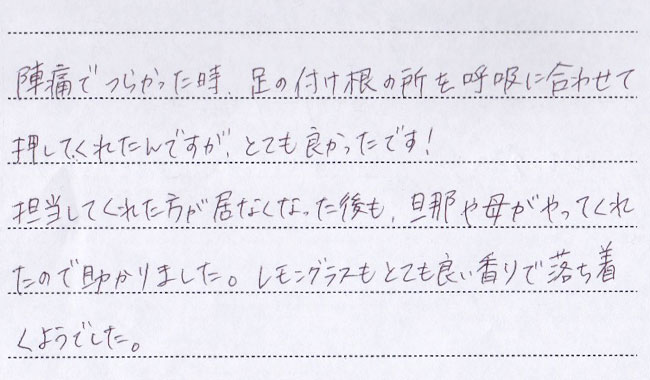 陣痛でつらかった時、足の付け根の所を呼吸に合わせて
押してくれたんですが、とても良かったです!
担当してくれた方が居なくなった後も、旦那や母がやってくれ
たので助かりました。レモングラスもとても良い香りで落ち着
くようでした。